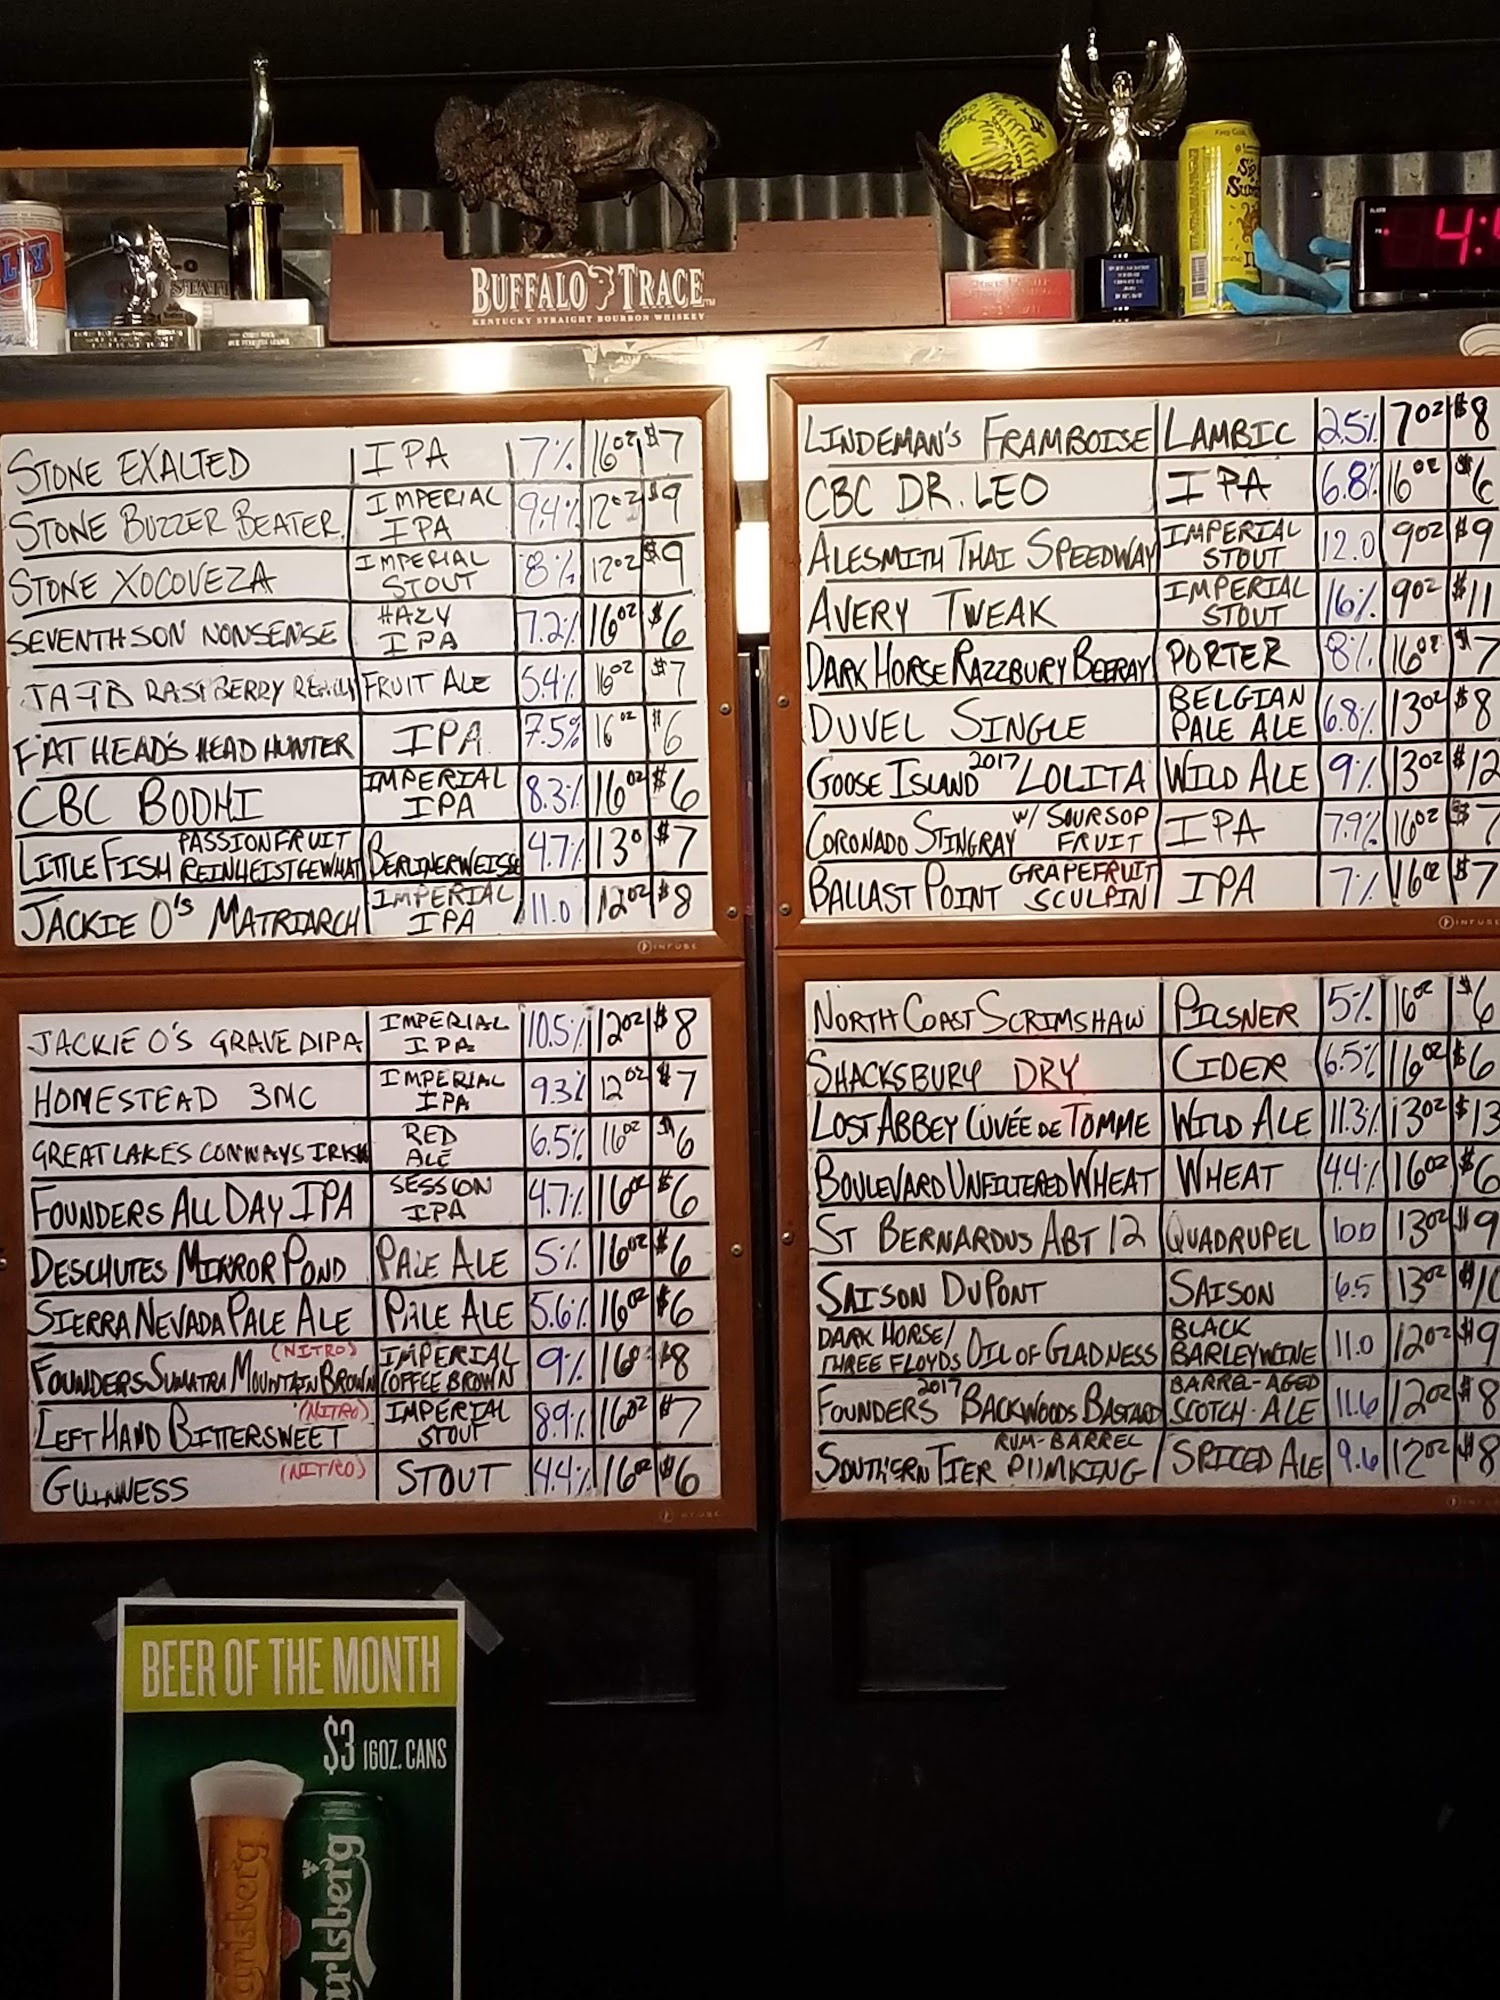 BUFFALO TRACE™
KENTUCKY STRAIGHT BOURBON WHISKEY
4:
STONE EXALTED IPA 7% 16oz $7
STONE BUZZER BEATER IMPERIAL IPA 9.4% 12oz $9
STONE XOCOVEZA IMPERIAL STOUT 8% 12oz $9
SEVENTH SON NONSENSE HAZY IPA 7.2% 16oz $6
RASPBERRY FRUIT ALE 5.4% 16oz $7
FAT HEAD'S HEAD HUNTER IPA 7.5% 16oz $6
CBC BODHI IMPERIAL IPA 8.3% 16oz $6
LITTLE FISH PASSIONFRUIT REINHEISTGEWHAT BERLINERWEISSE 4.7% 13o $7
JACKIE O'S MATRIARCH IMPERIAL IPA 11.0 12oz $8
INFUSE
JACKIE O'S GRAVE DIPA IMPERIAL IPA 10.5% 12oz $8
HOMESTEAD 3MC IMPERIAL IPA 9.3% 12oz $7
GREAT LAKES CONWAYS IRISH RED ALE 6.5% 16oz $6
FOUNDERS ALL DAY IPA SESSION IPA 4.7% 16oz $6
DESCHUTES MIRROR POND PALE ALE 5% 16oz $6
SIERRA NEVADA PALE ALE PALE ALE 5.6% 16oz $6
FOUNDERS SUMATRA MOUNTAIN BROWN (NITRO) IMPERIAL COFFEE BROWN 9% 16o $8
LEFT HAND BITTERSWEET (NITRO) IMPERIAL STOUT 8.9% 16oz $7
GUINNESS (NITRO) STOUT 4.4% 16oz $6
LINDEMAN'S FRAMBOISE LAMBIC 2.5% 7oz $8
CBC DR. LEO IPA 6.8% 16oz $6
ALESMITH THAI SPEEDWAY IMPERIAL STOUT 12.0 9oz $9
AVERY TWEAK IMPERIAL STOUT 16% 9oz $11
DARK HORSE RAZZBURY BEERAY PORTER 8% 16oz $7
DUVEL SINGLE BELGIAN PALE ALE 6.8% 13oz $8
GOOSE ISLAND 2017 LOLITA WILD ALE 9% 13oz $12
CORONADO STINGRAY W/ SOURSOP FRUIT IPA 7.9% 16oz $7
BALLAST POINT GRAPEFRUIT SCULPIN IPA 7% 16oz $7
INFUSE
NORTH COAST SCRIMSHAW PILSNER 5% 16oz $6
SHACKSBURY DRY CIDER 6.5% 16oz $6
LOST ABBEY CUVÉE DE TOMME WILD ALE 11.3% 13oz $13
BOULEVARD UNFILTERED WHEAT WHEAT 4.4% 16oz $6
ST BERNARDUS ABT 12 QUADRUPEL 10.0 13oz $9
SAISON DUPONT SAISON 6.5 13oz $10
DARK HORSE/ THREE FLOYDS OIL OF GLADNESS BLACK BARLEYWINE 11.0 12oz $9
FOUNDERS 2017 BACKWOODS BASTARD BARREL-AGED SCOTCH-ALE 11.6 12oz $8
SOUTHERN TIER RUM-BARREL PUMKING SPICED ALE 9.6 12oz $8
BEER OF THE MONTH
$3 16OZ. CANS
Carlsberg
Carlsberg